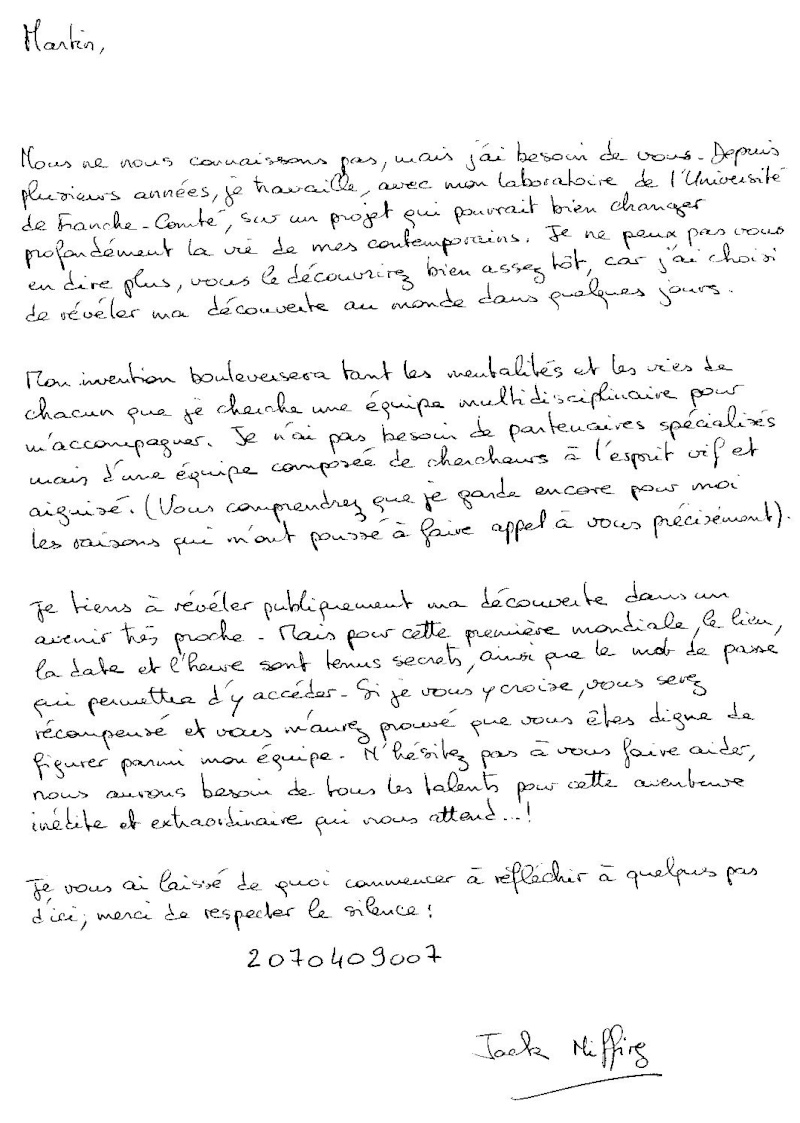 Martin,
Nous ne nous connaissons pas, mais j'ai besoin de vous. Depuis
plusieurs années, je travaille, avec mon laboratoire de l'Université
de Franche-Comté, sur un projet qui pourrait bien changer
profondément la vie de mes contemporains. Je ne peux pas vous
en dire plus, vous le découvrirez bien assez tôt, car j'ai choisi
de révéler ma découverte au monde dans quelques jours.
Mon invention bouleversera tant les mentalités et les vies de
chacun que je cherche une équipe multidisciplinaire pour
m'accompagner. Je n'ai pas besoin de partenaires spécialisés
mais d'une équipe composée de chercheurs à l'esprit vif et
aiguisé. (Vous comprendrez que je garde encore pour moi
les raisons qui m'ont poussé à faire appel à vous précisément).
Je tiens à révéler publiquement ma découverte dans un
avenir très proche. Mais pour cette première mondiale, le lieu,
la date et l'heure sont tenus secrets, ainsi que le mot de passe
qui permettra d'y accéder. Si je vous y croise, vous serez
récompensé et vous m'aurez prouvé que vous êtes digne de
figurer parmi mon équipe. N'hésitez pas à vous faire aider,
nous aurons besoin de tous les talents pour cette aventure
inédite et extraordinaire qui nous attend...!
Je vous ai laissé de quoi commencer à réfléchir à quelques pas
d'ici; merci de respecter le silence!
2070409007
Jack Niffirg